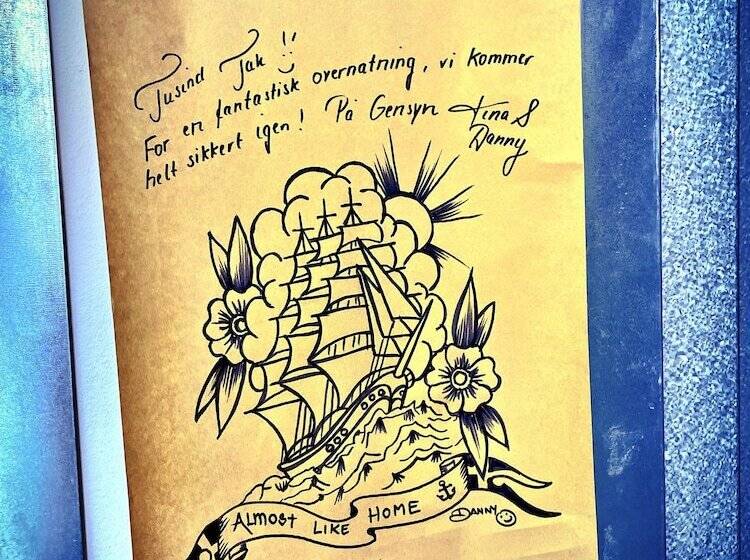 Tusind Tak !!
For en fantastisk overnatning, vi kommer
helt sikkert igen! På Gensyn Tina &
Danny
ALMOST LIKE HOME
DANNY